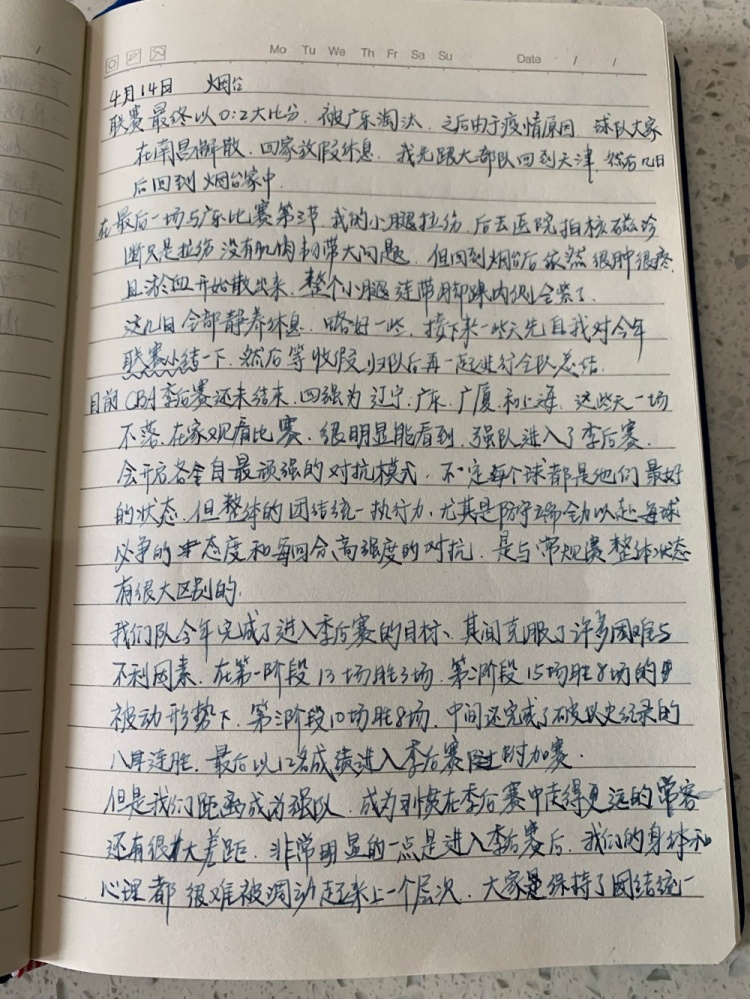 Mo Tu We Th Fr Sa Su Date / /
4月14日 烟台
联赛最终以0:2大比分,被广东淘汰,之后由于疫情原因,球队大家
在南昌解散,回家放假休息,我先跟大部队回到天津,然后几日
后回到烟台家中.
在最后一场与广东比赛第三节,我的小腿拉伤,后去医院拍核磁诊
断只是拉伤没有肌肉韧带大问题,但回到烟台后依然很肿很疼,
且淤血开始散出来,整个小腿连带脚踝内侧全紫了.
这几日全部静养休息,略好一些,接下来一些天先自我对今年
联赛小结一下,然后等收假归队后再一起进行全队总结.
目前CBA季后赛还未结束,四强为辽宁、广东、广厦和上海,这些天一场
不落在家观看比赛,很明显能看到,强队进入了季后赛,
会开启各全自最顽强的对抗模式,不一定每个球都是他们最好
的状态,但整体的团结统一执行力,尤其是防守端全力以赴每球
必争的态度和每回合、高强度的对抗,是与常规赛整体状态
有很大区别的.
我们队今年完成了进入季后赛的目标、其间克服了许多困难与
不利因素,在第一阶段13场胜3场,第二阶段15场胜8场的
被动形势下,第三阶段10场胜8场,中间还完成了破队史纪录的
八连胜,最后以12名成绩进入季后赛附加赛.
但是我们距离成为强队,成为习惯在季后赛中走得更远的常客
还有很大差距,非常明显的一点是进入季后赛后,我们的身体和
心理都很难被调动起来上一个层次,大家是保持了团结统一